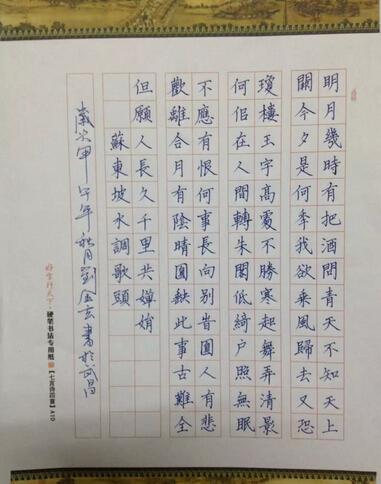 明月幾時有把酒問青天不知天上
闕今夕是何季我欲乘風歸去又恐
瓊樓玉宇高處不勝寒起舞弄清影
何侣在人間轉朱閣低綺户照無眠
不應有恨何事長向别旹圓人有悲
歡離合月有陰晴圓缺此事古難全
但願人長久千里共嬋娟
蘇東坡水調歌頭
歲次甲午年秋月劉金玄書於武昌
好字行天下·硬笔书法专用纸【七言诗四首】A10